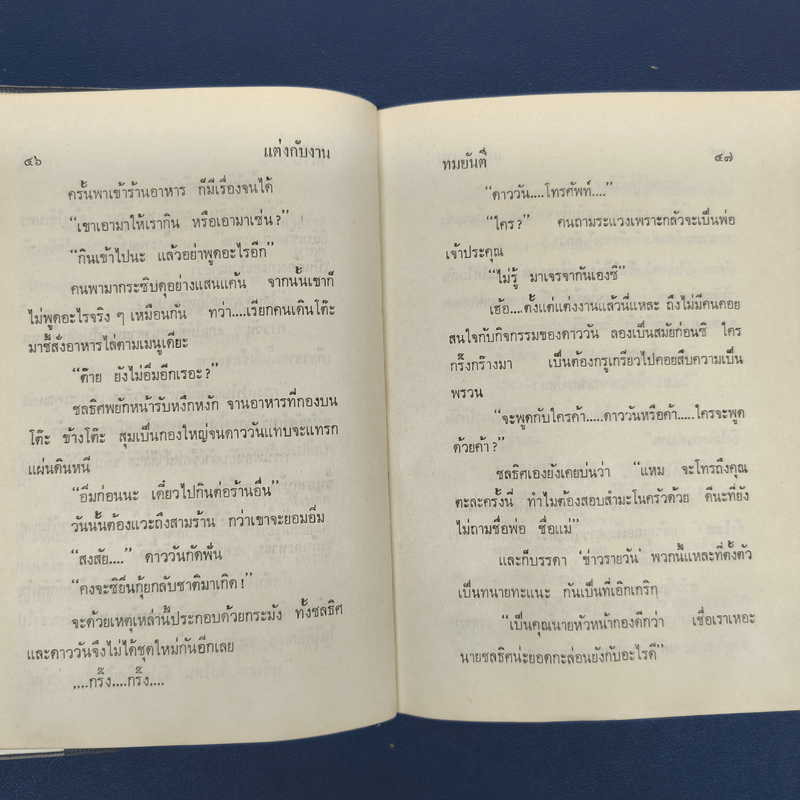 ๔๖
แต่งกับงาน
ครั้นพาเข้าร้านอาหาร ก็มีเรื่องจนได้
“เขาเอามาให้เรากิน หรือเอามาเซ่น?”
“กินเข้าไปนะ แล้วอย่าพูดอะไรอีก”
คนพามากระซิบดุอย่างแสนแค้น จากนั้นเขาก็
ไม่พูดอะไรจริง ๆ เหมือนกัน ทว่า....เรียกคนเดินโต๊ะ
มาชี้สั่งอาหารไล่ตามเมนูเดียะ
“ต๊าย ยังไม่อิ่มอีกเรอะ?”
ชลธิศพยักหน้ารับหงึกหงัก จานอาหารที่กองบน
โต๊ะ ข้างโต๊ะ สุมเป็นกองใหญ่จนดาววันแทบจะแทรก
แผ่นดินหนี
“อิ่มก่อนนะ เดี๋ยวไปกินต่อร้านอื่น”
วันนั้นต้องแวะถึงสามร้าน กว่าเขาจะยอมอิ่ม
“สงสัย....” ดาววันกัดฟัน
“คงจะซิยิ่นกุ้ยกลับชาติมาเกิด!”
จะด้วยเหตุเหล่านี้ประกอบด้วยกระมัง ทั้งชลธิศ
และดาววันจึงไม่ได้ชุดใหม่กันอีกเลย
....กริ๊ง....กริ๊ง....
ทมยันตี
๔๗
“ดาววัน....โทรศัพท์....”
“ใคร?” คนถามระแวงเพราะกลัวจะเป็นพ่อ
เจ้าประคุณ
“ไม่รู้ มาเจรจากันเองซิ”
เฮ้อ....ตั้งแต่แต่งงานแล้วนี่แหละ ถึงไม่มีคนคอย
สนใจกับกิจกรรมของดาววัน ลองเป็นสมัยก่อนซิ ใคร
กริ๊งกร๊างมา เป็นต้องกรูเกรียวไปคอยสืบความเป็น
พรวน
“จะพูดกับใครค้า.....ดาววันหรือค้า.....ใครจะพูด
ด้วยค้า?”
ชลธิศเองยังเคยบ่นว่า “แหม จะโทรถึงคุณ
ตะละครั้งนี่ ทำไมต้องสอบสำมะโนครัวด้วย ดีนะที่ยัง
ไม่ถามชื่อพ่อ ชื่อแม่”
และก็บรรดา ‘ข่าวรายวัน’ พวกนี้แหละที่ตั้งตัว
เป็นทนายทะแนะ กันเป็นที่เอิกเกริก
“เป็นคุณนายหัวหน้ากองดีกว่า เชื่อเราเหอะ
นายชลธิศน่ะยอดกะล่อนยังกับอะไรดี”